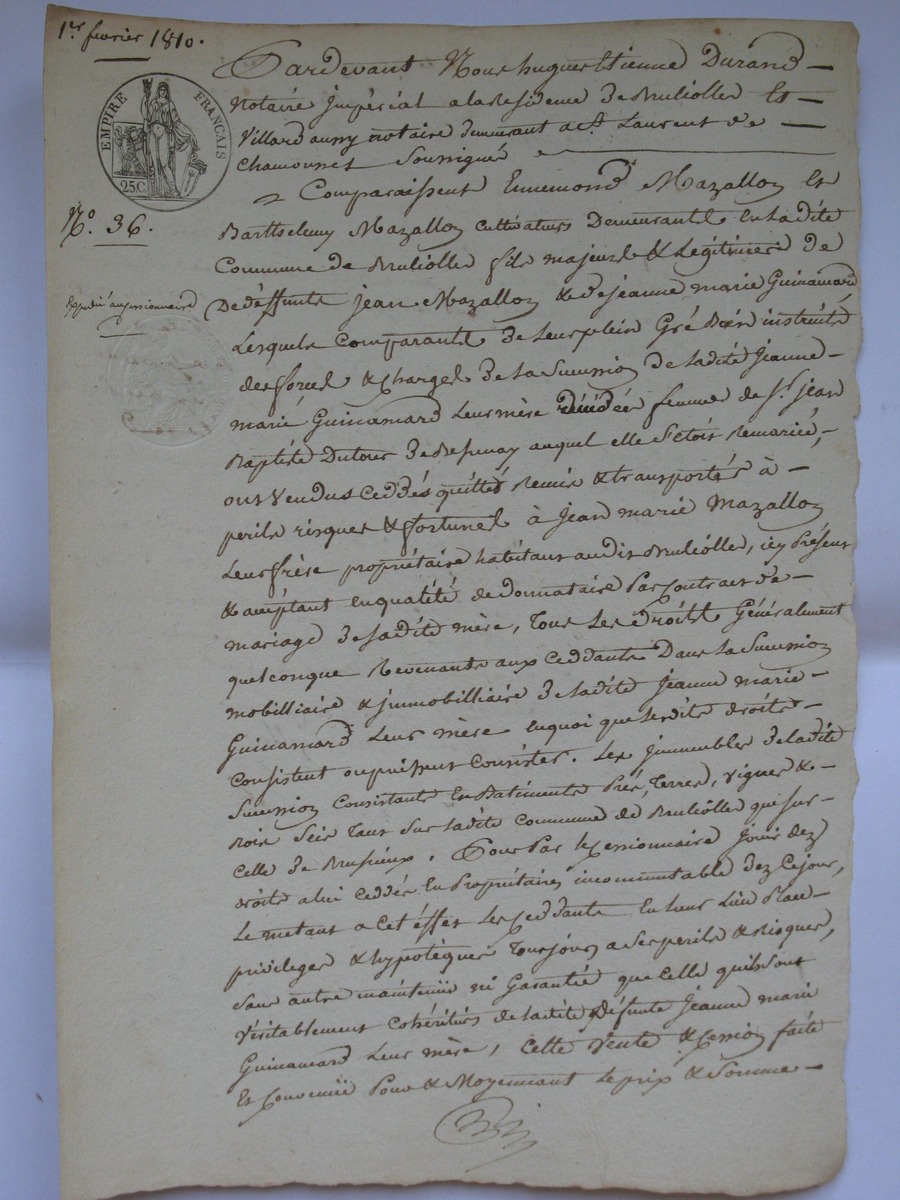 1.er fevrier 1810.
EMPIRE FRANÇAIS
25C
N.o 36.
Expédié au cessionnaire
Pardevant Nous hugues Etienne Durand
Notaire Impérial a la Residence de Brullolles Et
Villard aussy notaire demeurant a St. Laurent de
Chamousset Soussignés
Comparaissent Ennemond Mazallon Et
Barthelemy Mazallon cultivateurs Demeurants En ladite
Commune de Brullolles fils majeurs & Légitimes de
De déffunts jean Mazallon & de jeanne marie Guinamard
Lesquels comparants de leur plein Gré Bien instruits
des forces & charges de la Succession de ladite Jeanne
marie Guinamard Leur mère décédée femme de Sr. jean
Baptiste Dutour de Bessenay auquel elle S'etoit Remariée,
ont Vendus Ceddés quittés Remis & transportés à
perils risques & fortunes à Jean marie Mazallon
Leur frère propriétaire habitant audit Brullolles, icy Présent
& acceptant en qualité de donnataire Par Contract de
mariage de ladite mère, Tous Les droits Généralement
quelconque Revenants aux Ceddants Dans la Succession
mobilliaire & jmmobilliaire de ladite Jeanne marie
Guinamard Leur mère en quoi que lesdits droits
Consistent ou puissent Consister. Les jmmeubles de ladite
Succession Consistants En Batiments Prés, Terres, Vignes &
Bois Sis Tant Sur ladite commune de Brullolles que sur
celle de Brussieux. Pour Par le Cessionnaire Jouir dez
droits a lui ceddés En Propriétaire incommutable dez Ce jour,
Le metant a cet éffet Les Ceddants En leurs Lieu Place
privileges & hypotèques Toujours a Ses perils & Risques,
Sans autre maintenüe ni Garantie que Celle qu'ils Sont
Véritablement Cohéritiers de ladite Défunte Jeanne marie
Guinamard Leur mère, Cette Vente & Cession faite
Et Convenüe Pour & Moyennant Le prix & Somme